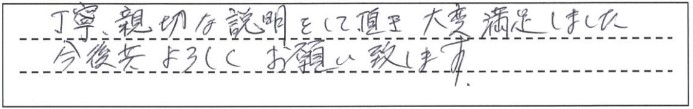 丁寧、親切な説明をして頂き大変満足しました
今後共よろしくお願い致します.